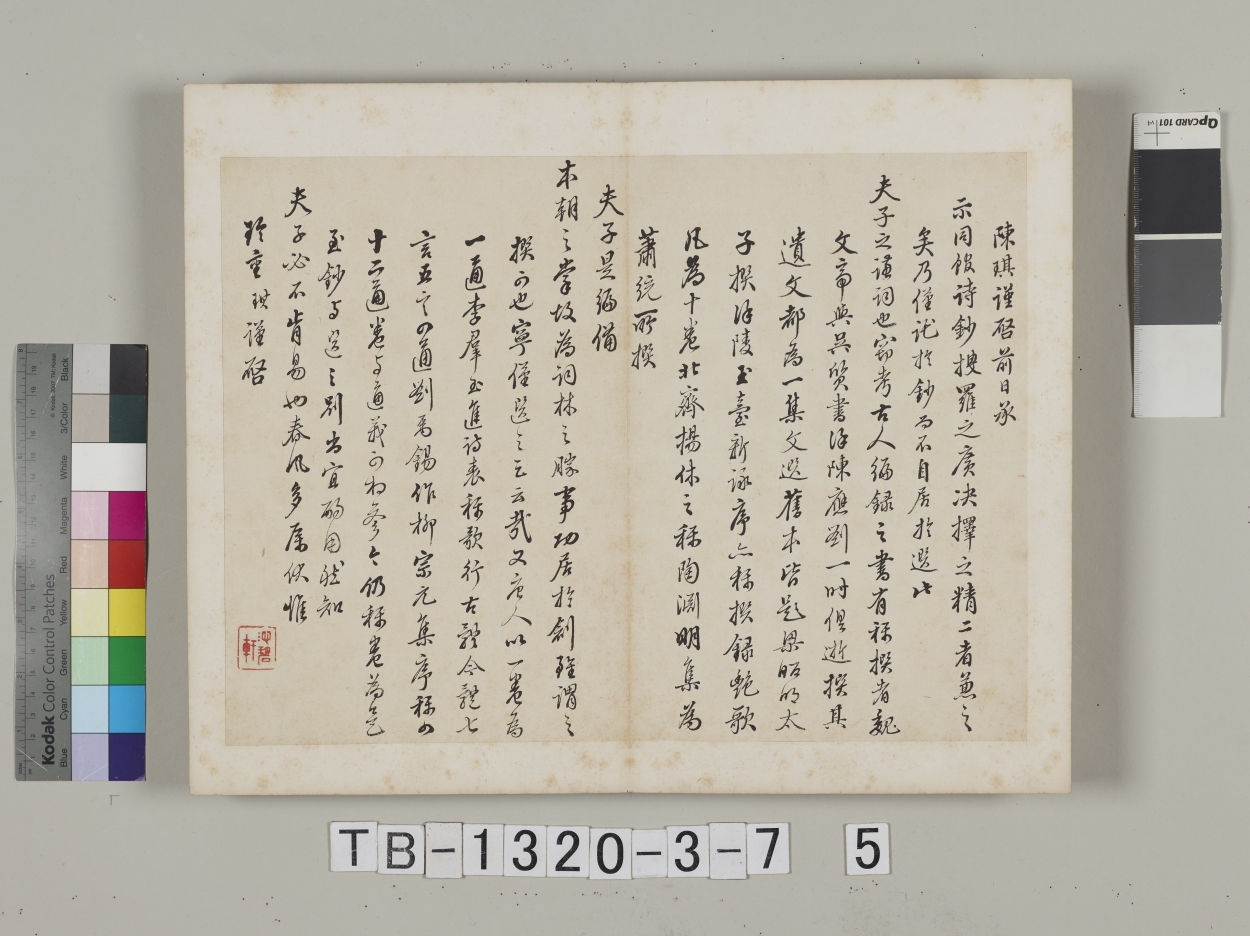 陳琪謹啓前日承
示同館詩鈔搜羅之廣決擇之精二者兼之
矣乃僅託於鈔而不自居於選此
夫子之謙詞也竊考古人編錄之書有稱撰者魏
文帝與吳質書徐陳應劉一時俱逝撰其
遺文都為一集文選舊本皆題梁昭明太
子撰徐陵玉臺新詠序亦稱撰錄艷歌
凡為十卷北齊揚休之稱陶淵明集為
蕭統所撰
夫子是編備
本朝之掌故為詞林之勝事功居於創雖謂之
撰可也寧僅選之云云哉又唐人以一卷為
一通李羣玉進詩表稱歌行古體今體七
言五言四通劉禹錫作柳宗元集序稱四
十二通卷與通義可相參今仍稱卷為是
至鈔與選之別尚宜酌用然知
夫子必不肯易也春風多厲伏惟
珍重 琪謹啓
Kodak Color Control Patches
Blue Cyan Green Yellow Red Magenta White 3/Color Black
QPCARD 101
TB-1320-3-7 5